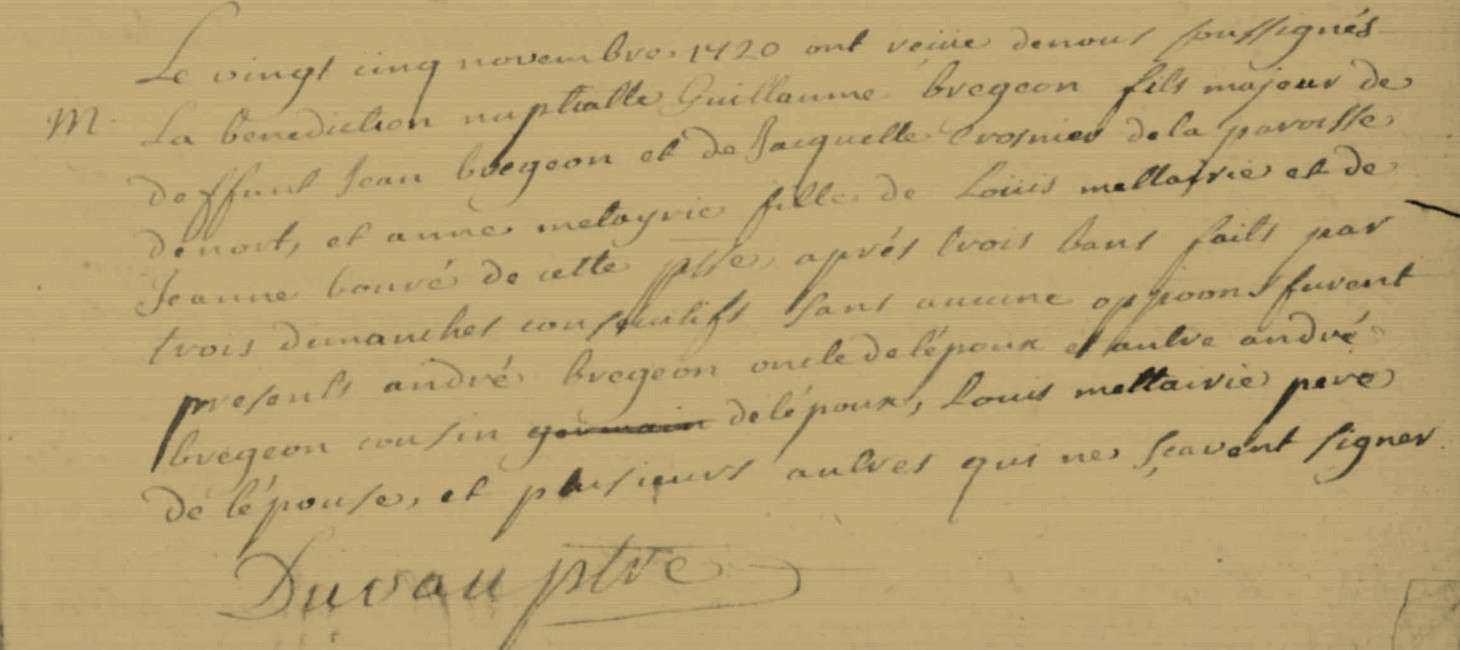 Le vingt cinq novembre 1720 ont reçüe denous soussignés
M. La benediction nuptialle Guillaume bregeon fils majeur de
deffunt Jean bregeon et de Jacquette Crosnier dela paroisse
denort, et anne metayrie fille de Loüis mettairie et de
Jeanne bouré de cette psse, aprés trois bans faits par
trois dimanches consecutifs sans aucune oppoons furent
presents andré bregeon oncle de lépoux et autre andré
bregeon cousin germain delépoux, Louis mettairie pere
dé lépouse, et plusieurs autres qui ne sçavent signer
Duvau ptre